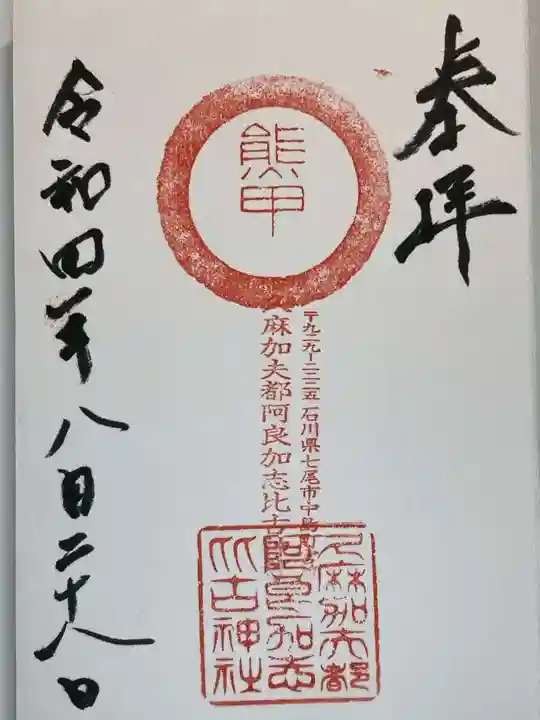 奉拝
熊甲
〒九二九ー二二二五 石川県七尾市中島町
麻加夫都阿良加志比古
久麻加夫都
阿良加志
比古神社
令和四年八月二十八日